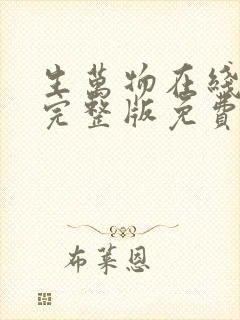 生萬物在綫
完整版免費
布萊恩